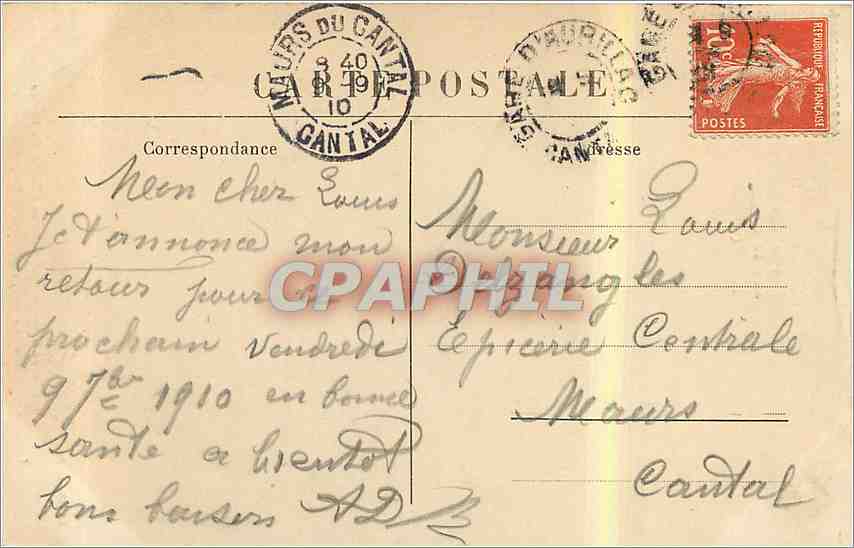 CARTE POSTALE
MAURS DU CANTAL
8 40
9 -9
10
CANTAL
GARE D'AURILLAC
CANTAL
GARE
REPUBLIQUE FRANÇAISE
10c
POSTES
Correspondance
Adresse
Mon cher Louis
Je t'annonce mon
retour pour le
prochain vendredi
9 7bre 1910 en bonne
sante a bientot
bons baisers AD
Monsieur Louis
Delzangles
Epicerie Centrale
Maurs
Cantal
CPAPHIL